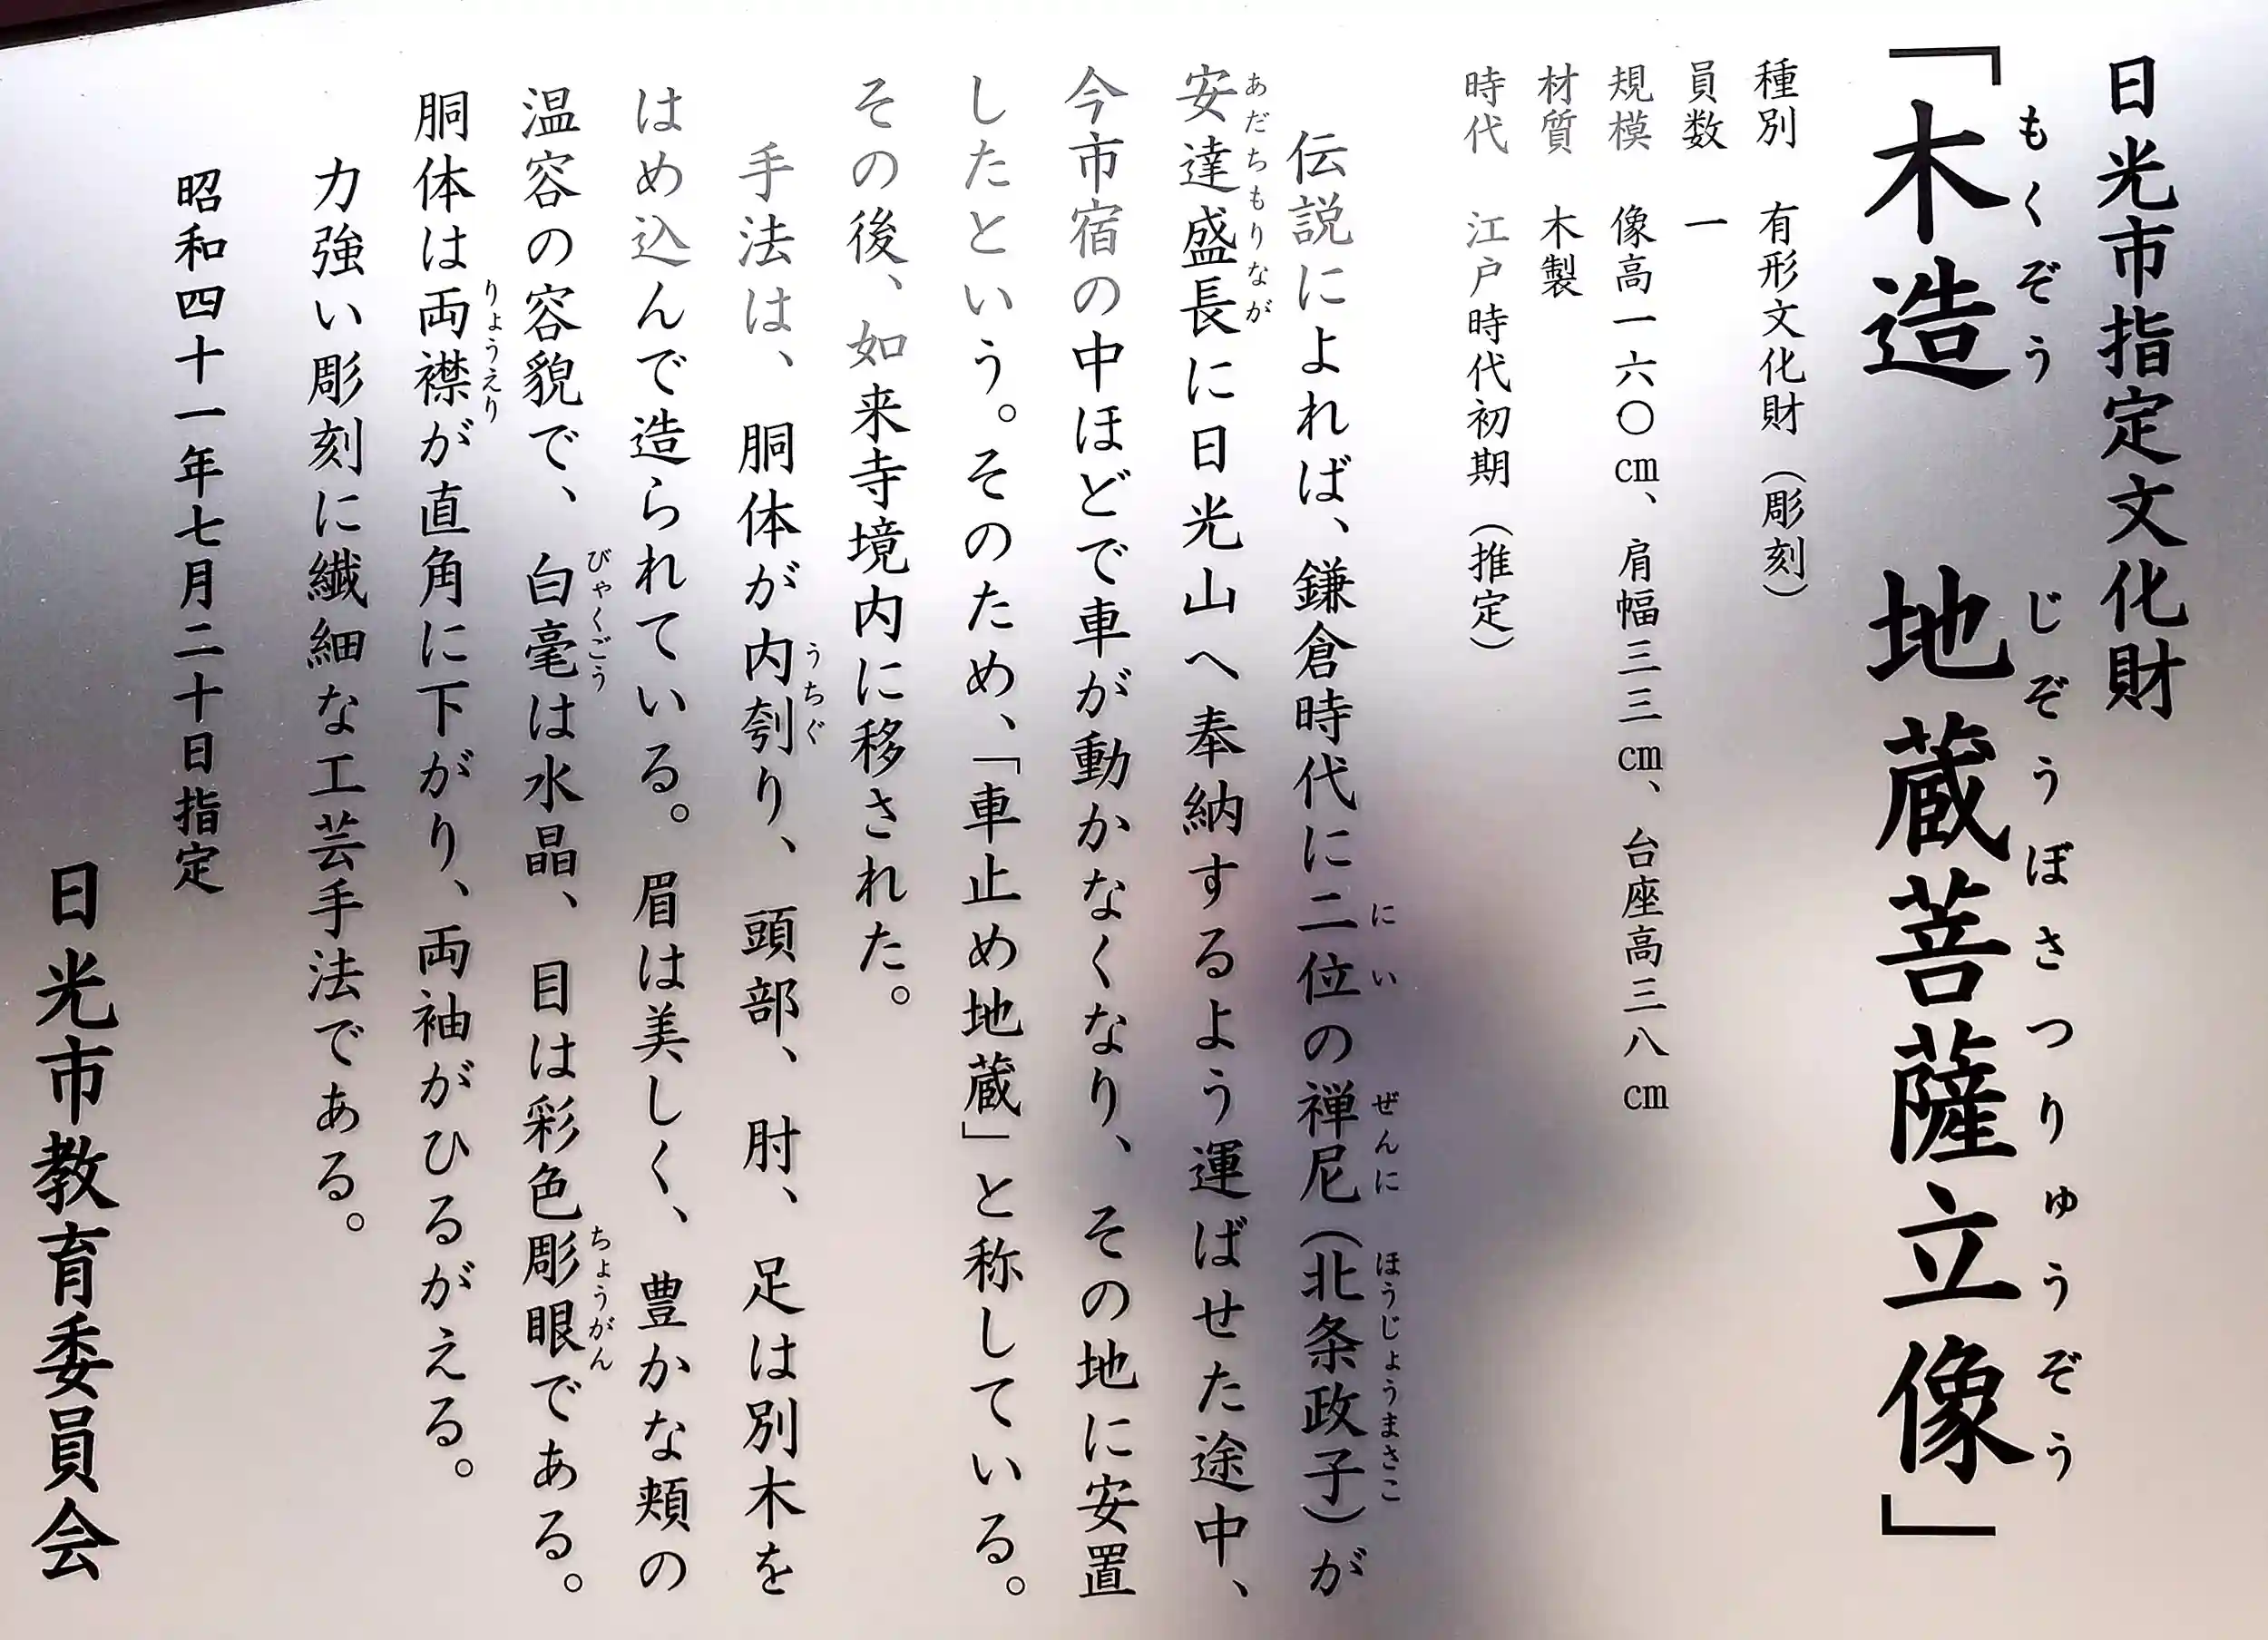 日光市指定文化財
もくぞう じぞうぼさつりゅうぞう
「木造 地蔵菩薩立像」
種別 有形文化財(彫刻)
員数 一
規模 像高一六〇㎝、肩幅三三㎝、台座高三八㎝
材質 木製
時代 江戸時代初期(推定)
にい ぜんに ほうじょうまさこ
伝説によれば、鎌倉時代に二位の禅尼(北条政子)が
あだちもりなが
安達盛長に日光山へ奉納するよう運ばせた途中、
今市宿の中ほどで車が動かなくなり、その地に安置
したという。そのため、「車止め地蔵」と称している。
その後、如来寺境内に移された。
うちぐ
手法は、胴体が内刳り、頭部、肘、足は別木を
はめ込んで造られている。眉は美しく、豊かな頬の
びゃくごう ちょうがん
温容の容貌で、白毫は水晶、目は彩色彫眼である。
りょうえり
胴体は両襟が直角に下がり、両袖がひるがえる。
力強い彫刻に繊細な工芸手法である。
昭和四十一年七月二十日指定
日光市教育委員会